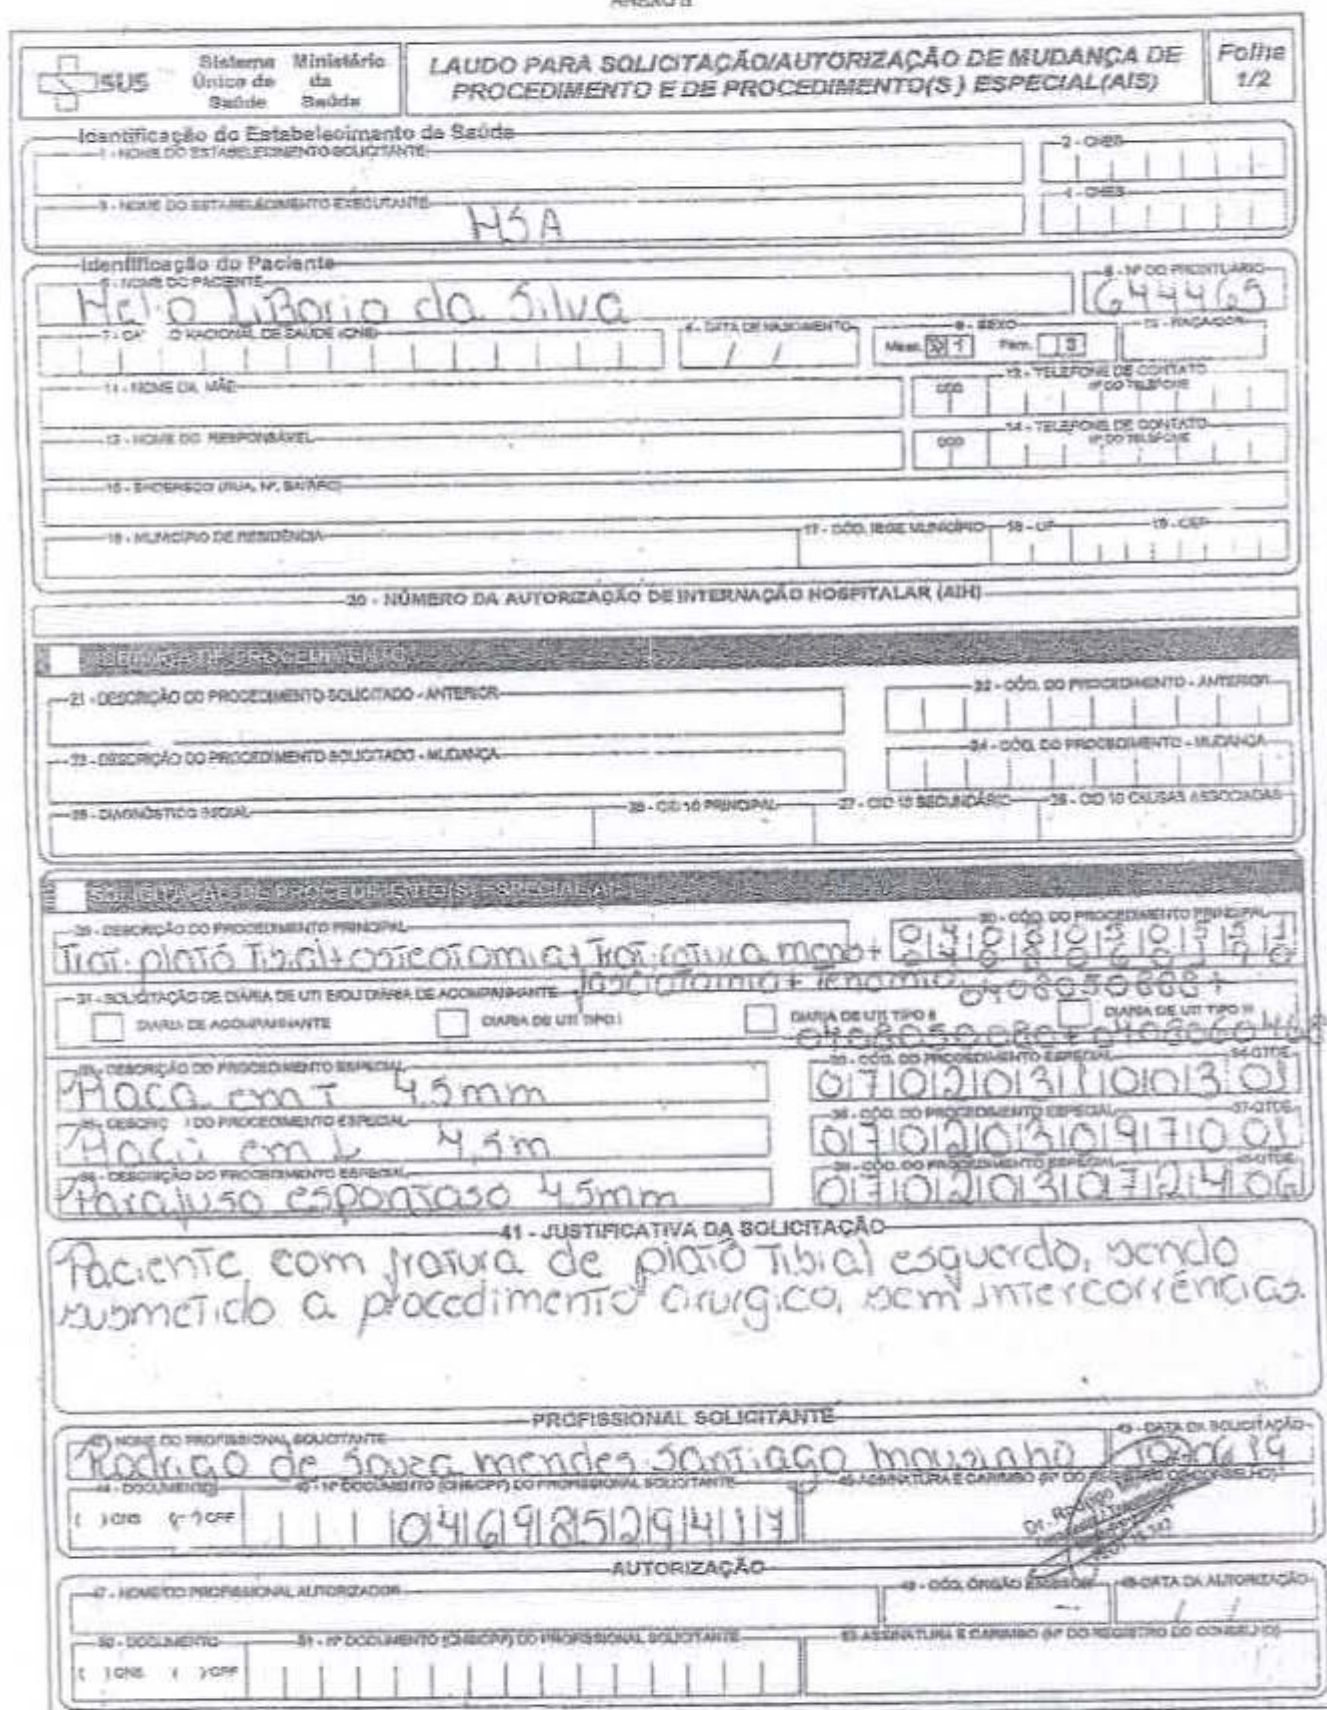 ANEXO II
SUS
Sistema Único de Saúde
Ministério da Saúde
LAUDO PARA SOLICITAÇÃO/AUTORIZAÇÃO DE MUDANÇA DE
PROCEDIMENTO E DE PROCEDIMENTO(S) ESPECIAL(AIS)
Folha
1/2
Identificação do Estabelecimento de Saúde
1 - NOME DO ESTABELECIMENTO SOLICITANTE
2 - CNES
3 - NOME DO ESTABELECIMENTO EXECUTANTE
4 - CNES
HSA
Identificação do Paciente
5 - NOME DO PACIENTE
6 - Nº DO PRONTUÁRIO
Helio Liborio da Silva
644469
NACIONAL DE SAÚDE (CNS)
8 - DATA DE NASCIMENTO
9 - SEXO
Masc. 1 Fem. 3
10 - RAÇA/COR
11 - NOME DA MÃE
12 - TELEFONE DE CONTATO
DDD Nº DO TELEFONE
13 - NOME DO RESPONSÁVEL
14 - TELEFONE DE CONTATO
DDD Nº DO TELEFONE
15 - ENDEREÇO (RUA, Nº, BAIRRO)
16 - MUNICÍPIO DE RESIDÊNCIA
17 - CÓD. IBGE MUNICÍPIO
18 - UF
19 - CEP
20 - NÚMERO DA AUTORIZAÇÃO DE INTERNAÇÃO HOSPITALAR (AIH)
MUDANÇA DE PROCEDIMENTO
21 - DESCRIÇÃO DO PROCEDIMENTO SOLICITADO - ANTERIOR
22 - CÓD. DO PROCEDIMENTO - ANTERIOR
23 - DESCRIÇÃO DO PROCEDIMENTO SOLICITADO - MUDANÇA
24 - CÓD. DO PROCEDIMENTO - MUDANÇA
25 - DIAGNÓSTICO INICIAL
26 - CID 10 PRINCIPAL
27 - CID 10 SECUNDÁRIO
28 - CID 10 CAUSAS ASSOCIADAS
SOLICITAÇÃO DE PROCEDIMENTO(S) ESPECIAL(AIS)
29 - DESCRIÇÃO DO PROCEDIMENTO PRINCIPAL
30 - CÓD. DO PROCEDIMENTO PRINCIPAL
0408050551
Trat. platô Tibial + osteotomia + Trat. +
0408060190
31 - SOLICITAÇÃO DE DIÁRIA DE UTI E/OU DIÁRIA DE ACOMPANHANTE
0408050888+
DIARIA DE ACOMPANHANTE
DIARIA DE UTI TIPO I
DIARIA DE UTI TIPO II
DIARIA DE UTI TIPO III
DESCRIÇÃO DO PROCEDIMENTO ESPECIAL
33 - CÓD. DO PROCEDIMENTO ESPECIAL
34-QTDE
Placa em T 4,5mm
0702031003 01
DO PROCEDIMENTO ESPECIAL
36 - CÓD. DO PROCEDIMENTO ESPECIAL
37-QTDE
Placa em L 4,5m
0702030970 01
DESCRIÇÃO DO PROCEDIMENTO ESPECIAL
39 - CÓD. DO PROCEDIMENTO ESPECIAL
40-QTDE
Parajuso esponjaso 4,5mm
0702030724 06
41 - JUSTIFICATIVA DA SOLICITAÇÃO
Paciente com fratura de platô Tibial esquerdo, sendo
submetido a procedimento cirurgico, sem intercorrências.
PROFISSIONAL SOLICITANTE
42 - NOME DO PROFISSIONAL SOLICITANTE
43 - DATA DA SOLICITAÇÃO
Rodrigo de Souza mendes Santiago mousinho
44 - DOCUMENTO
45 - Nº DOCUMENTO (CNS/CPF) DO PROFISSIONAL SOLICITANTE
46-ASSINATURA E CARIMBO (Nº DO REGISTRO DO CONSELHO)
( ) CNS ( ) CPF
04698529417
Dr. Rodrigo
AUTORIZAÇÃO
47 - NOME DO PROFISSIONAL AUTORIZADOR
48 - CÓD. ÓRGÃO EMISSOR
49-DATA DA AUTORIZAÇÃO
50 - DOCUMENTO
51 - Nº DOCUMENTO (CNS/CPF) DO PROFISSIONAL SOLICITANTE
52-ASSINATURA E CARIMBO (Nº DO REGISTRO DO CONSELHO)
( ) CNS ( ) CPF